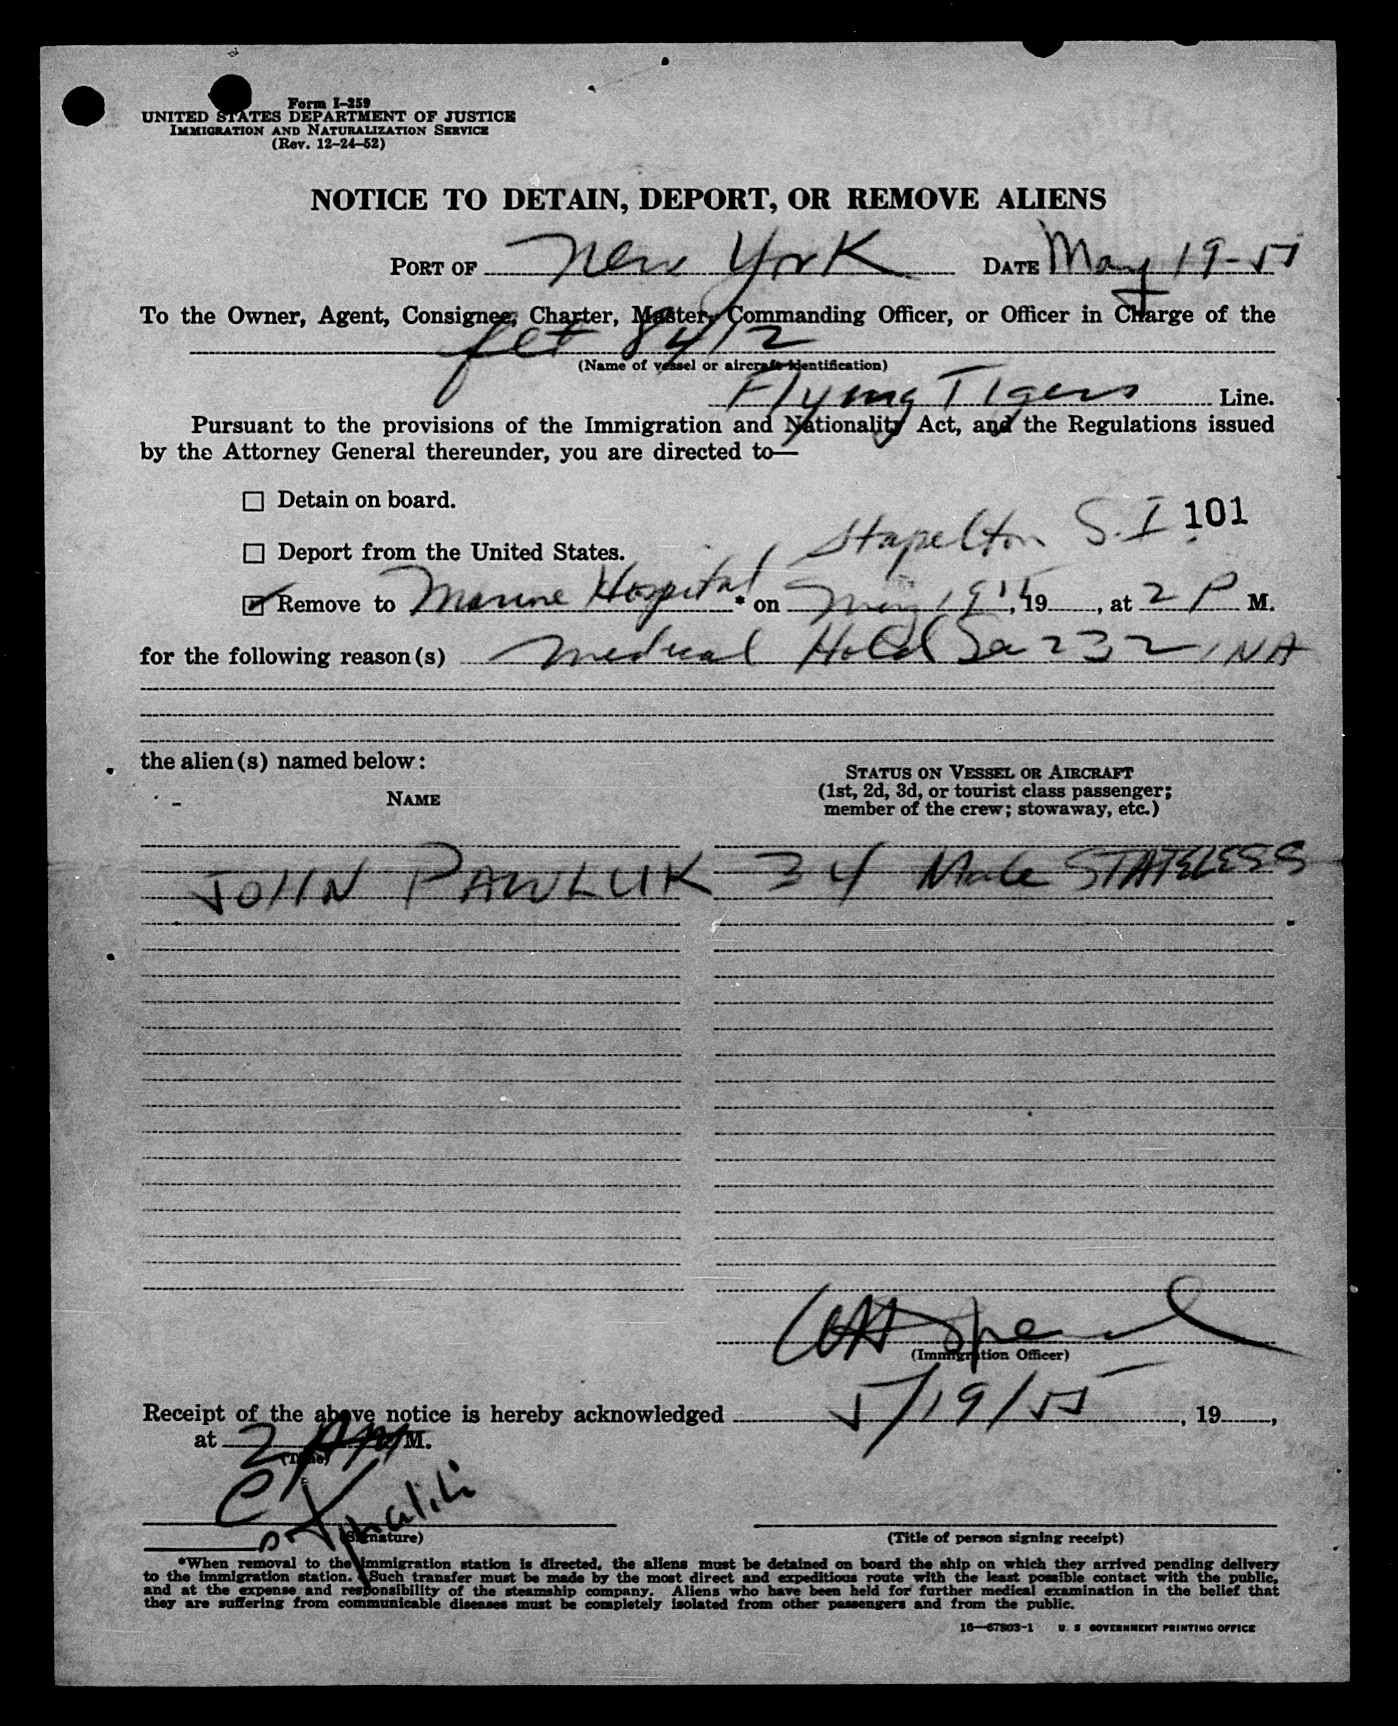 Form I-259
UNITED STATES DEPARTMENT OF JUSTICE
IMMIGRATION AND NATURALIZATION SERVICE
(Rev. 12-24-52)
NOTICE TO DETAIN, DEPORT, OR REMOVE ALIENS
PORT OF New York DATE May 19-55
To the Owner, Agent, Consignee, Charter, Master, Commanding Officer, or Officer in Charge of the
flt 8412
(Name of vessel or aircraft identification)
Flying Tigers Line.
Pursuant to the provisions of the Immigration and Nationality Act, and the Regulations issued
by the Attorney General thereunder, you are directed to—
☐ Detain on board.
Stapelton S.I. 101
☐ Deport from the United States.
☑ Remove to Marine Hospital * on May 19, 19 , at 2 P M.
for the following reason(s) Medical Hold Sec 232 INA
the alien(s) named below:
STATUS ON VESSEL OR AIRCRAFT
(1st, 2d, 3d, or tourist class passenger;
member of the crew; stowaway, etc.)
NAME
JOHN PAWLUK 34 Male STATELESS
(Immigration Officer)
Receipt of the above notice is hereby acknowledged 5/19/55, 19 ,
at 2 PM M.
(Time)
(Signature)
(Title of person signing receipt)
*When removal to the immigration station is directed, the aliens must be detained on board the ship on which they arrived pending delivery
to the immigration station. Such transfer must be made by the most direct and expeditious route with the least possible contact with the public,
and at the expense and responsibility of the steamship company. Aliens who have been held for further medical examination in the belief that
they are suffering from communicable diseases must be completely isolated from other passengers and from the public.
16—67803-1 U. S. GOVERNMENT PRINTING OFFICE